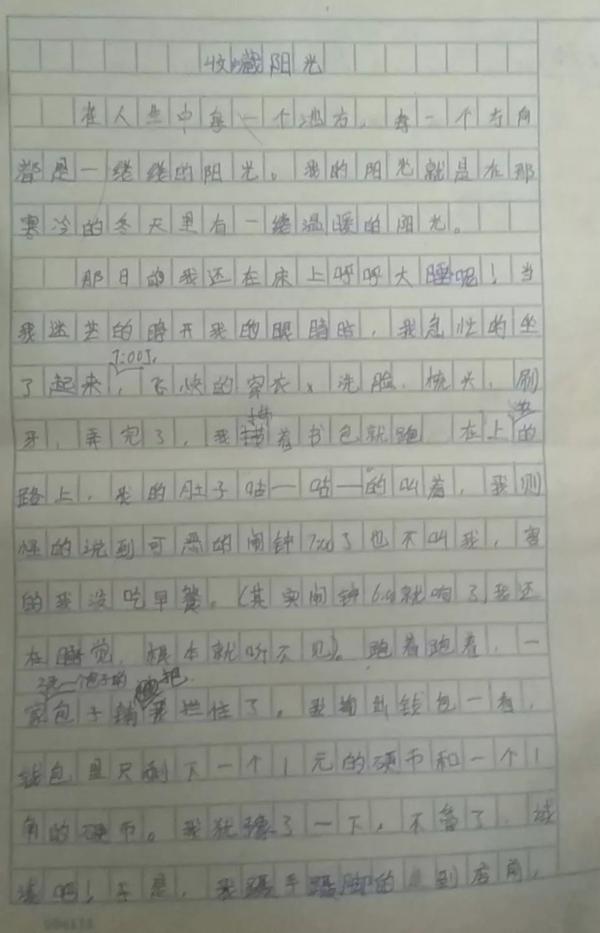 收藏阳光
在人生中每一个地方，每一个方向
都是一缕缕的阳光。我的阳光就是在那
寒冷的冬天里有一缕温暖的阳光。
那日的我还在床上呼呼大睡呢！当
我迷茫的睁开我的眼睛时，我急忙的坐
7:00了，
了起来，飞快的穿衣、洗脸、梳头、刷
牙，弄完了，我背着书包就跑 在上学的
路上，我的肚子咕一咕一的叫着，我
怪的说到可恶的闹钟7:00了也不叫我，害
的我没吃早餐。（其实闹钟6:00就响了我还
在睡觉，根本就听不见）。跑着跑着，一
家包子铺把我拦住了。我拿出钱包一看，
钱包里只剩下一个1元的硬币和一个1
角的硬币。我犹豫了一下，不管了，试
试吧！于是，我蹑手蹑脚的 到店前，